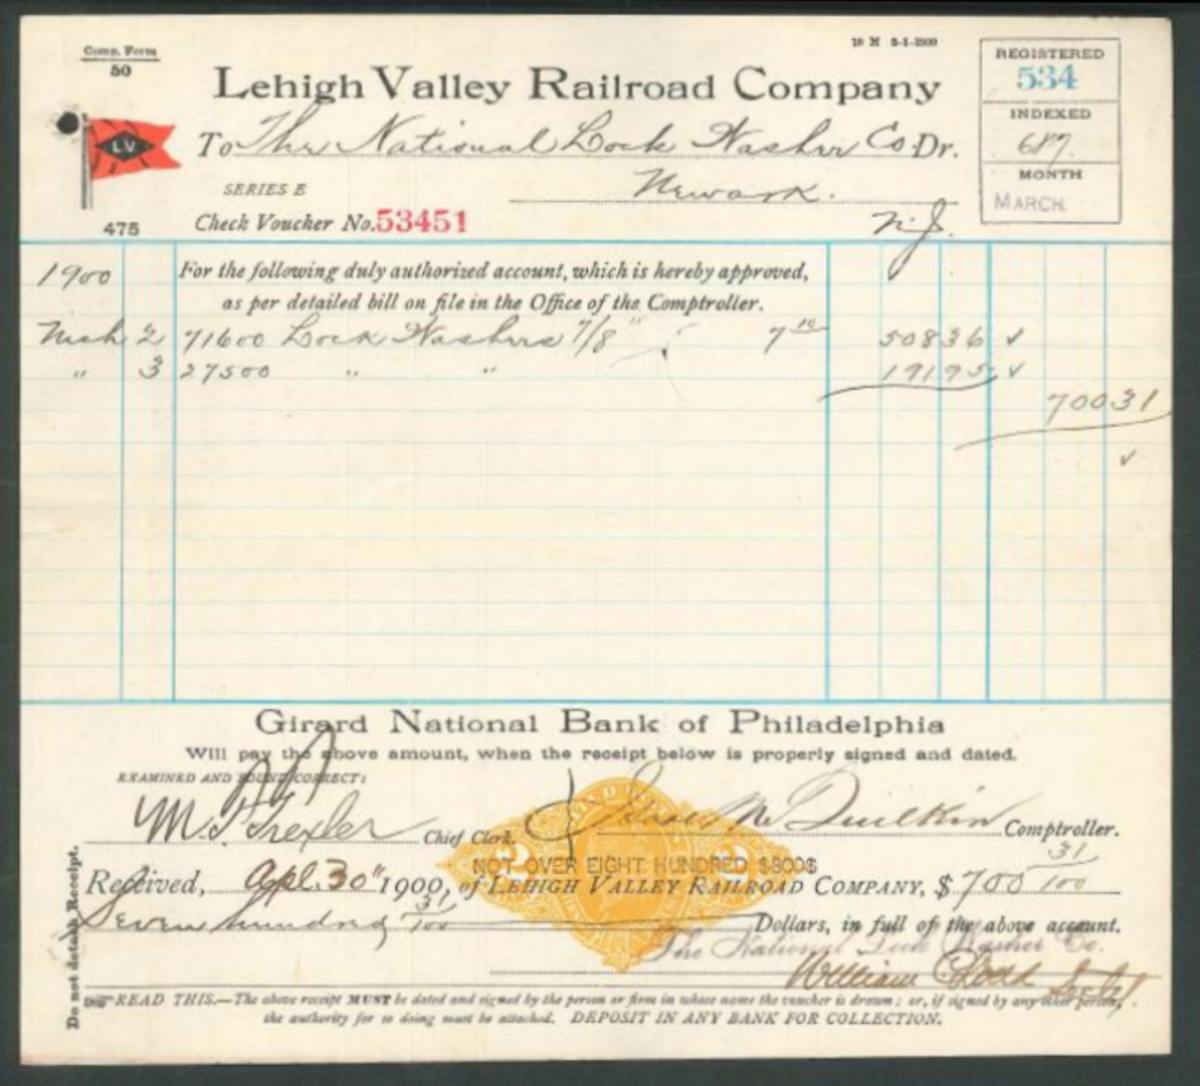 Comp. Form
50
10 M 2-1-1900
Lehigh Valley Railroad Company
REGISTERED
534
INDEXED
687
MONTH
MARCH
L.V.
To The National Lock Washer Co. Dr.
SERIES E
Newark.
N.J.
475
Check Voucher No. 53451
1900
For the following duly authorized account, which is hereby approved,
as per detailed bill on file in the Office of the Comptroller.
Mch 2 71600 Lock Washers 7/8" 7 10 508 36 ✓
" 3 27500 " " 191 95 ✓
700 31
✓
Girard National Bank of Philadelphia
Will pay the above amount, when the receipt below is properly signed and dated.
EXAMINED AND FOUND CORRECT:
M. Trexler Chief Clerk.
Comptroller.
NOT OVER EIGHT HUNDRED $800$
Received, Apl. 30" 1900, of LEHIGH VALLEY RAILROAD COMPANY, $ 700 31/100
Seven hundred 31/100 Dollars, in full of the above account.
The National Lock Washer Co.
William
Do not detach Receipt.
READ THIS.—The above receipt MUST be dated and signed by the person or firm in whose name the voucher is drawn; or, if signed by any other person,
the authority for so doing must be attached. DEPOSIT IN ANY BANK FOR COLLECTION.